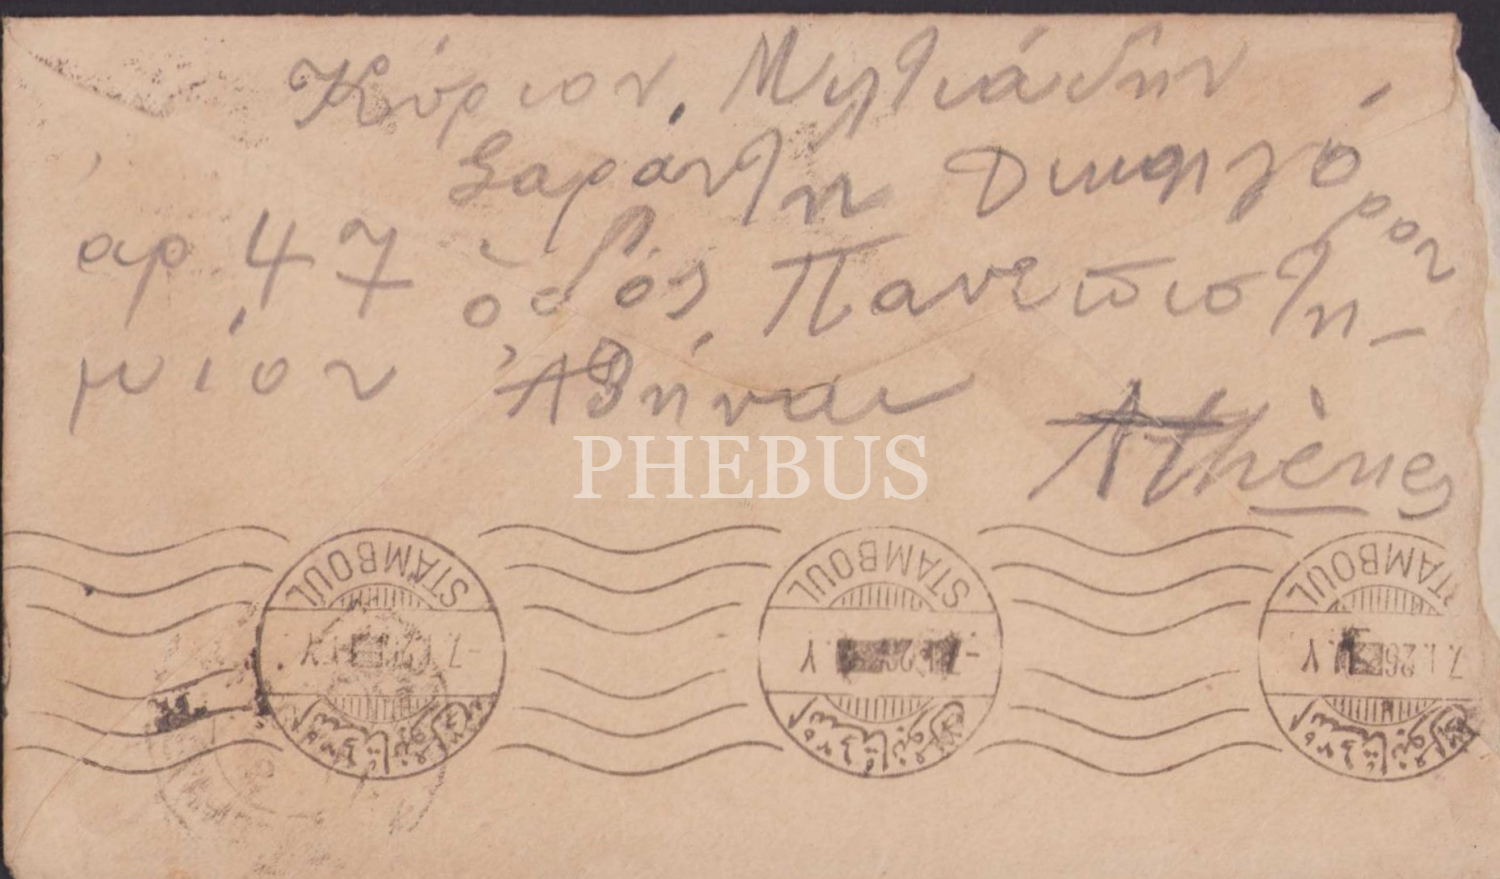 Κύριον, Μιλτιάδην
Σαράντη Δικηγό
ρον
αρ. 47 ὁδός, Πανεπιστη-
μίου Ἀθήναι
Athènes
PHEBUS
STAMBOUL STAMBOUL STAMBOUL
-7.1.26 7.1.26